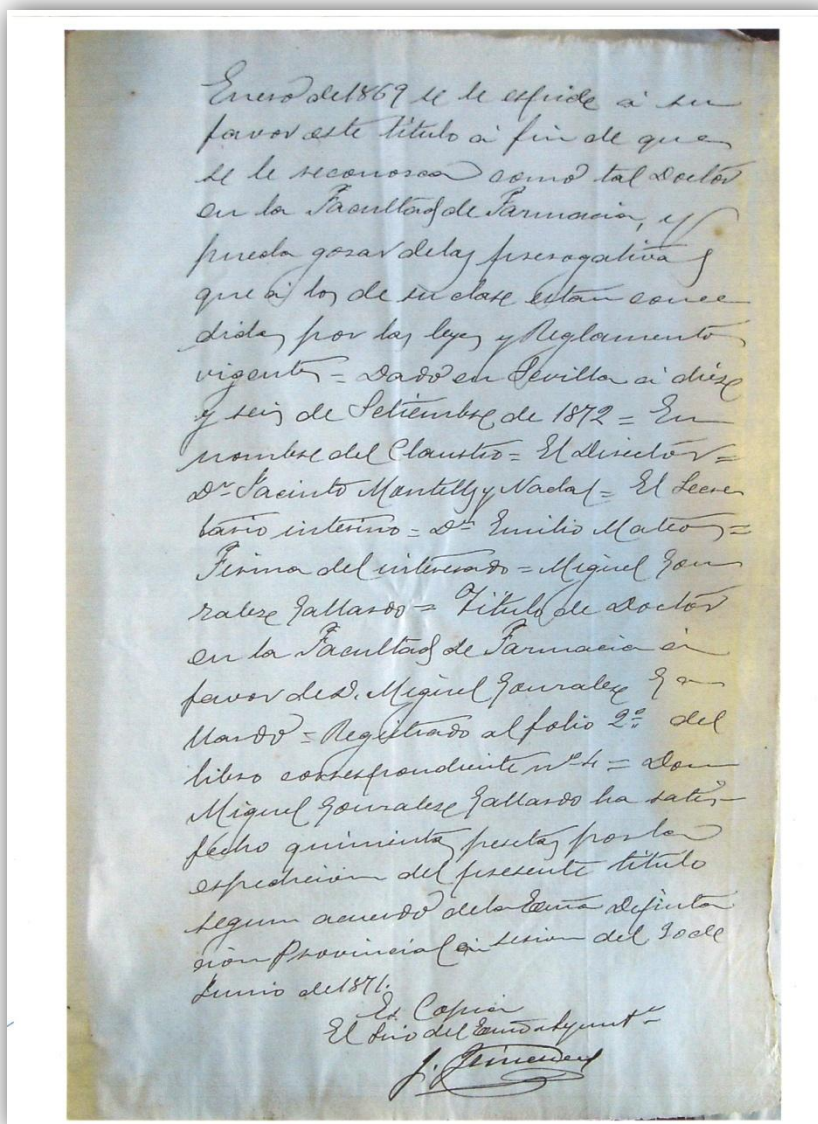 Enero de 1869 se le espide á su
favor este título á fin de que
se le reconosca como tal Doctor
en la Facultad de Farmacia, y
pueda gosar de las prerogativas
que á los de su clase estan conce
didas por las leyes y Reglamentos
vigentes = Dado en Sevilla á diez
y seis de Setiembre de 1872 = En
nombre del Claustro = El Director =
Dr. Jacinto Montells y Nadal = El Secre
tario interino = Dr. Emilio Mateos =
Firma del interesado = Miguel Gon
zalez Gallardo = Título de Doctor
en la Facultad de Farmacia á
favor de D. Miguel Gonzalez Ga
llardo = Registrado al folio 2º del
libro correspondiente nº 4 = Don
Miguel Gonzalez Gallardo ha satis
fecho quinientas pesetas por la
espedicion del presente título
segun acuerdo de la Exma Diputa
cion Provincial en sesion del 30 de
Junio de 1871.
Es Copia
El Srio del Exmo Ayuntº
J. Jimenez